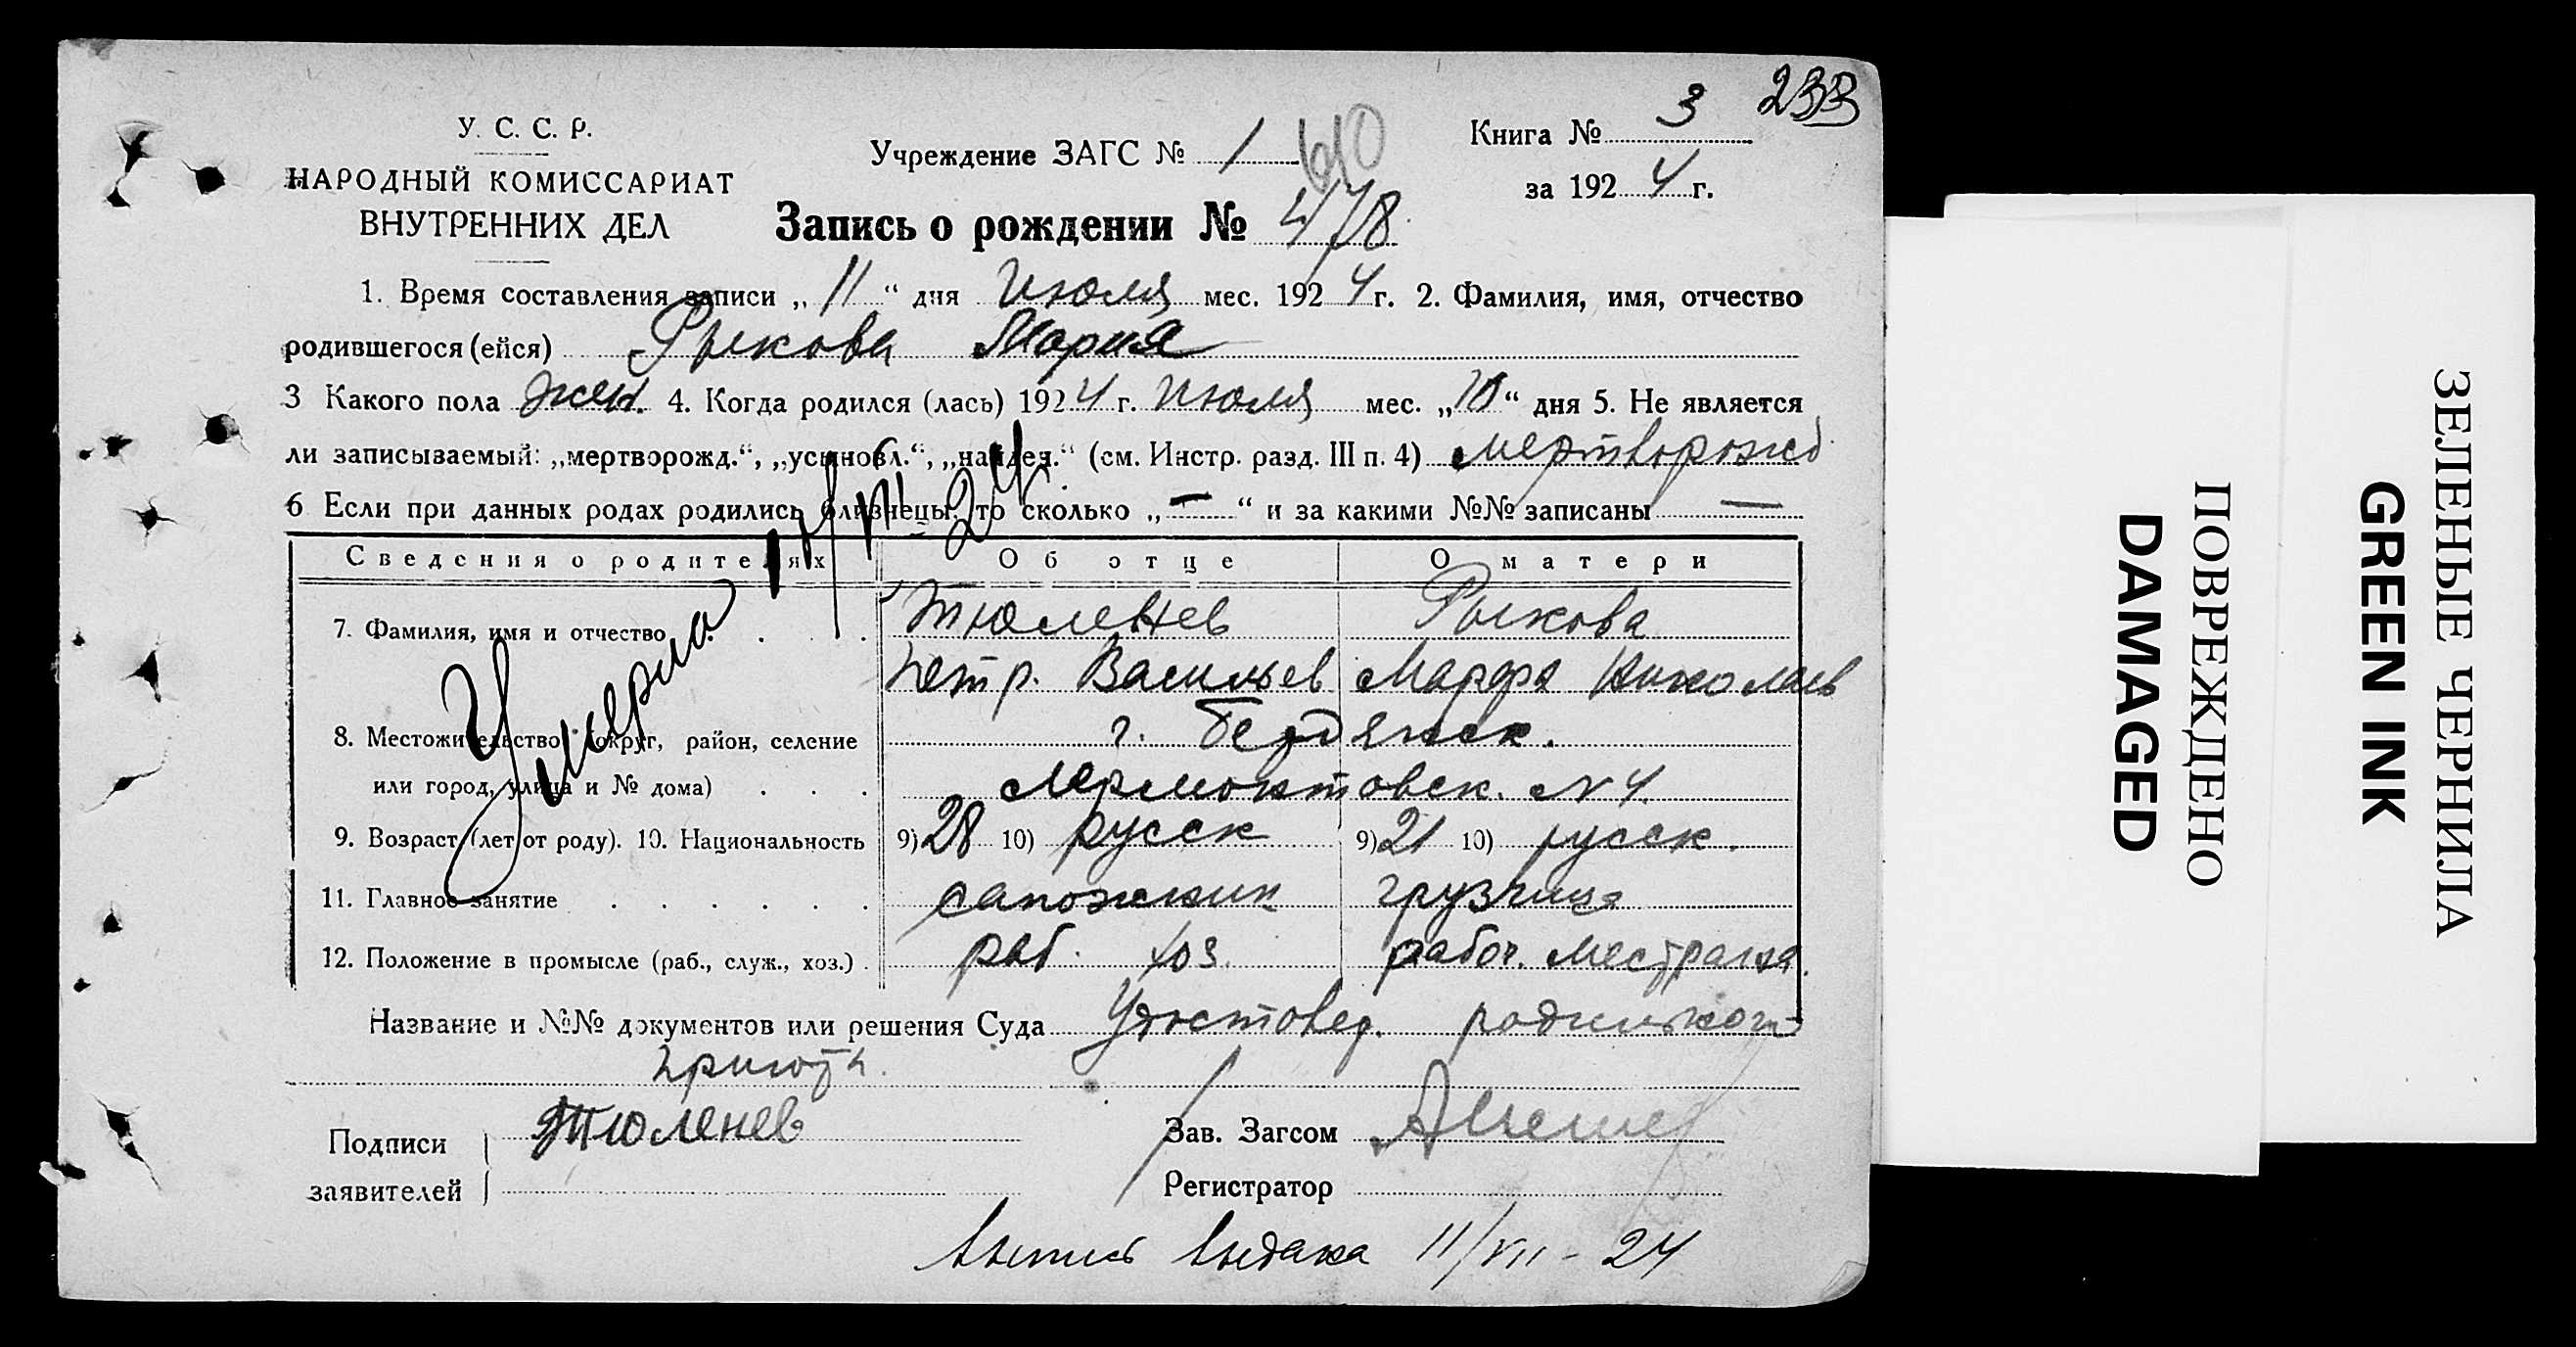 233
У. С. С. Р.
НАРОДНЫЙ КОМИССАРИАТ
ВНУТРЕННИХ ДЕЛ
Учреждение ЗАГС № 1
610
Книга № 3
за 1924 г.
Запись о рождении № 478
1. Время составления записи „11“ дня Июля мес. 1924 г. 2. Фамилия, имя, отчество
родившегося (ейся) Рыкова Мария
3 Какого пола жен. 4. Когда родился (лась) 1924 г. Июля мес. „10“ дня 5. Не является
ли записываемый: „мертворожд.“, „усыновл.“, „найден.“ (см. Инстр. разд. III п. 4) мертворожд
6 Если при данных родах родились близнецы, то сколько „—“ и за какими №№ записаны —
Сведения о родителях Об отце О матери
7. Фамилия, имя и отчество Тюленев Рыкова
Петр. Васильев Марфа Николаев
8. Местожительство (округ, район, селение г. Бердянск.
или город, улица и № дома) Лермонтовск. N 4.
9. Возраст (лет от роду). 10. Национальность 9) 28 10) русск 9) 21 10) русск.
11. Главное занятие сапожник грузчица
12. Положение в промысле (раб., служ., хоз.) раб. хоз. рабоч.
Умерла
Название и №№ документов или решения Суда Удостовер.
Подписи
заявителей
Тюленев
Зав. Загсом
Регистратор
Выпись выдана 11/VII - 24
ПОВРЕЖДЕНО
DAMAGED
ЗЕЛЕНЫЕ ЧЕРНИЛА
GREEN INK